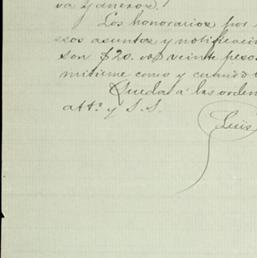 va y anexos.
Los honorarios por
esos asuntos y notificacio
son $20. veinte pesos
mitirme como y cuando
Quedo á las orden
att° y S.S.
Luis